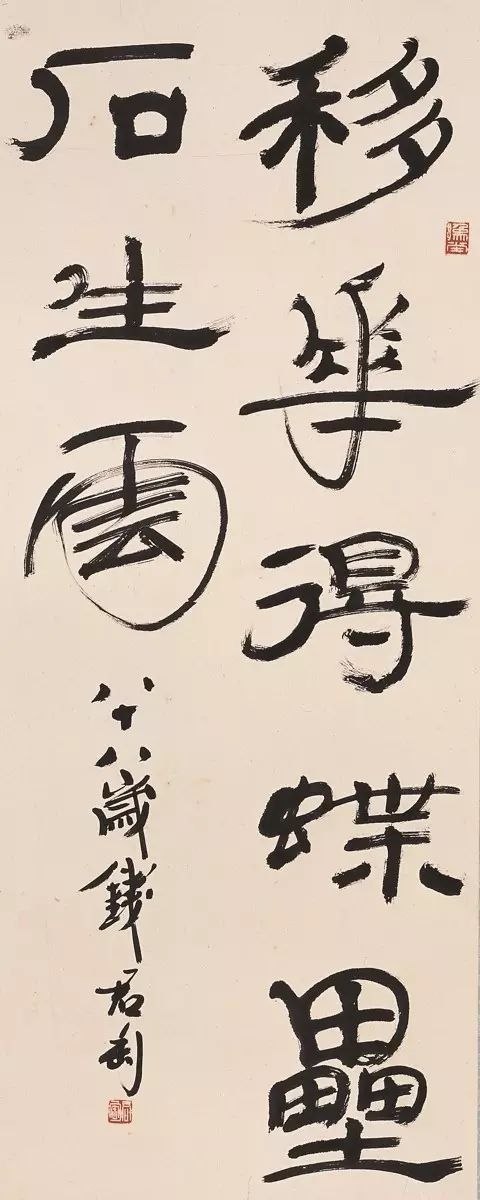 移华得蝶壘
石生雲
八十八歲錢君匋